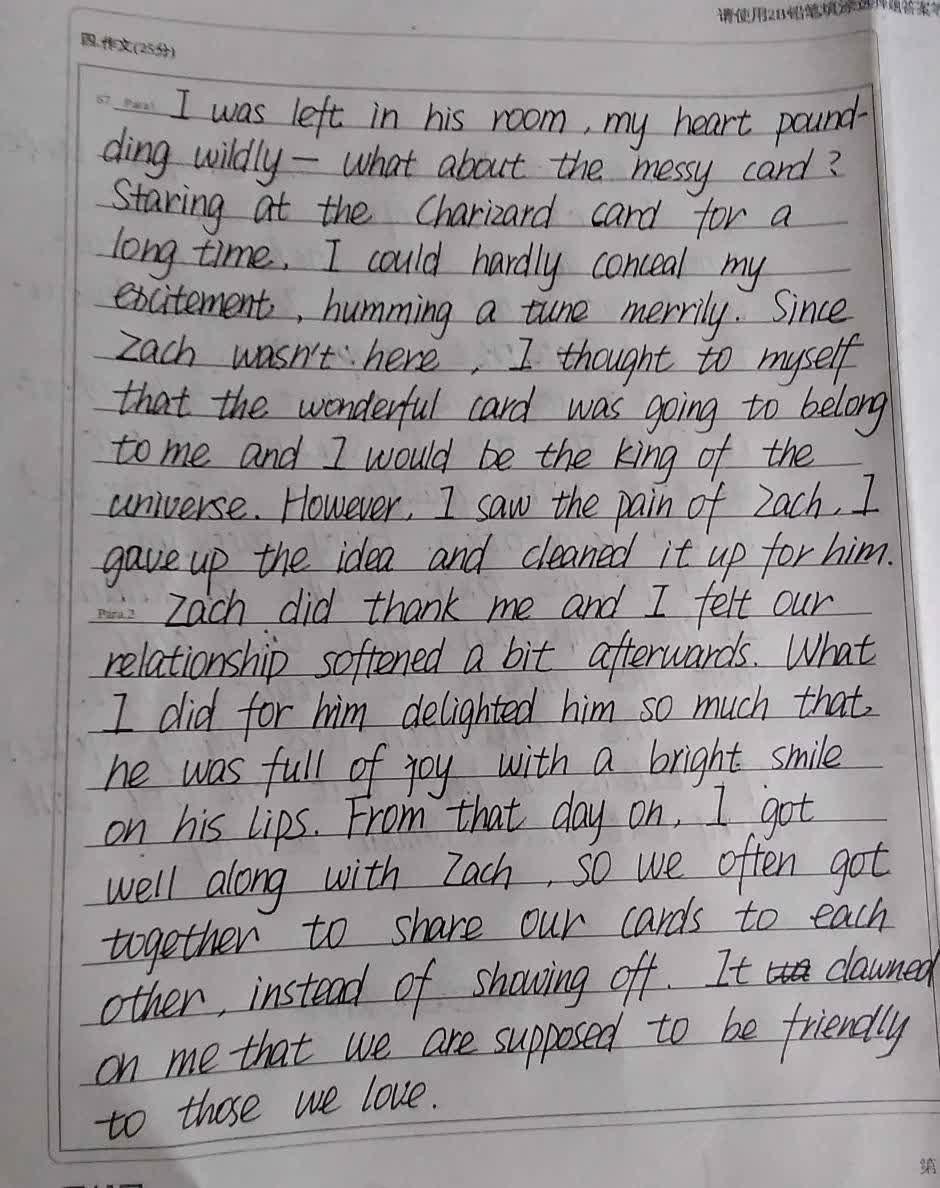 请使用2B铅笔填涂选择题答案等
四.作文(25分)
67. Para1 I was left in his room, my heart pound-
ding wildly — what about the messy card?
Staring at the Charizard card for a
long time, I could hardly conceal my
excitement, humming a tune merrily. Since
Zach wasn't here, I thought to myself
that the wonderful card was going to belong
to me and I would be the king of the
universe. However, I saw the pain of Zach, I
gave up the idea and cleaned it up for him.
Para.2 Zach did thank me and I felt our
relationship softened a bit afterwards. What
I did for him delighted him so much that
he was full of joy with a bright smile
on his lips. From that day on, I got
well along with Zach, so we often got
together to share our cards to each
other, instead of showing off. It dawned
on me that we are supposed to be friendly
to those we love.
第